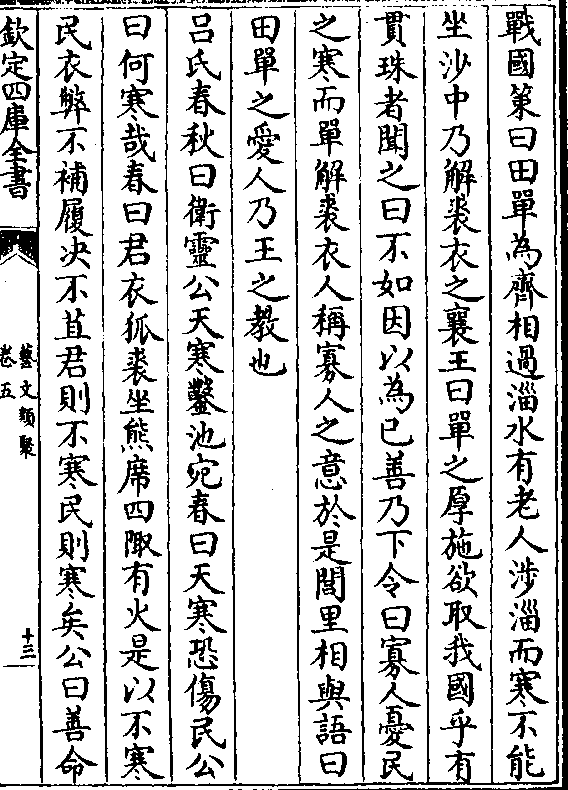 戰國策曰田單為齊相過淄水有老人涉淄而寒不能
坐沙中乃解裘衣之襄王曰單之厚施欲取我國乎有
貫珠者聞之曰不如因以為已善乃下令曰寡人憂民
之寒而單解裘衣人稱寡人之意於是閭里相與語曰
田單之愛人乃王之教也
吕氏春秋曰衛靈公天寒鑿池宛春曰天寒恐傷民公
曰何寒哉春曰君衣狐裘坐熊席四陬有火是以不寒
民衣弊不補履决不苴君則不寒民則寒矣公曰善命
欽定四庫全書
藝文類聚
卷五
十三